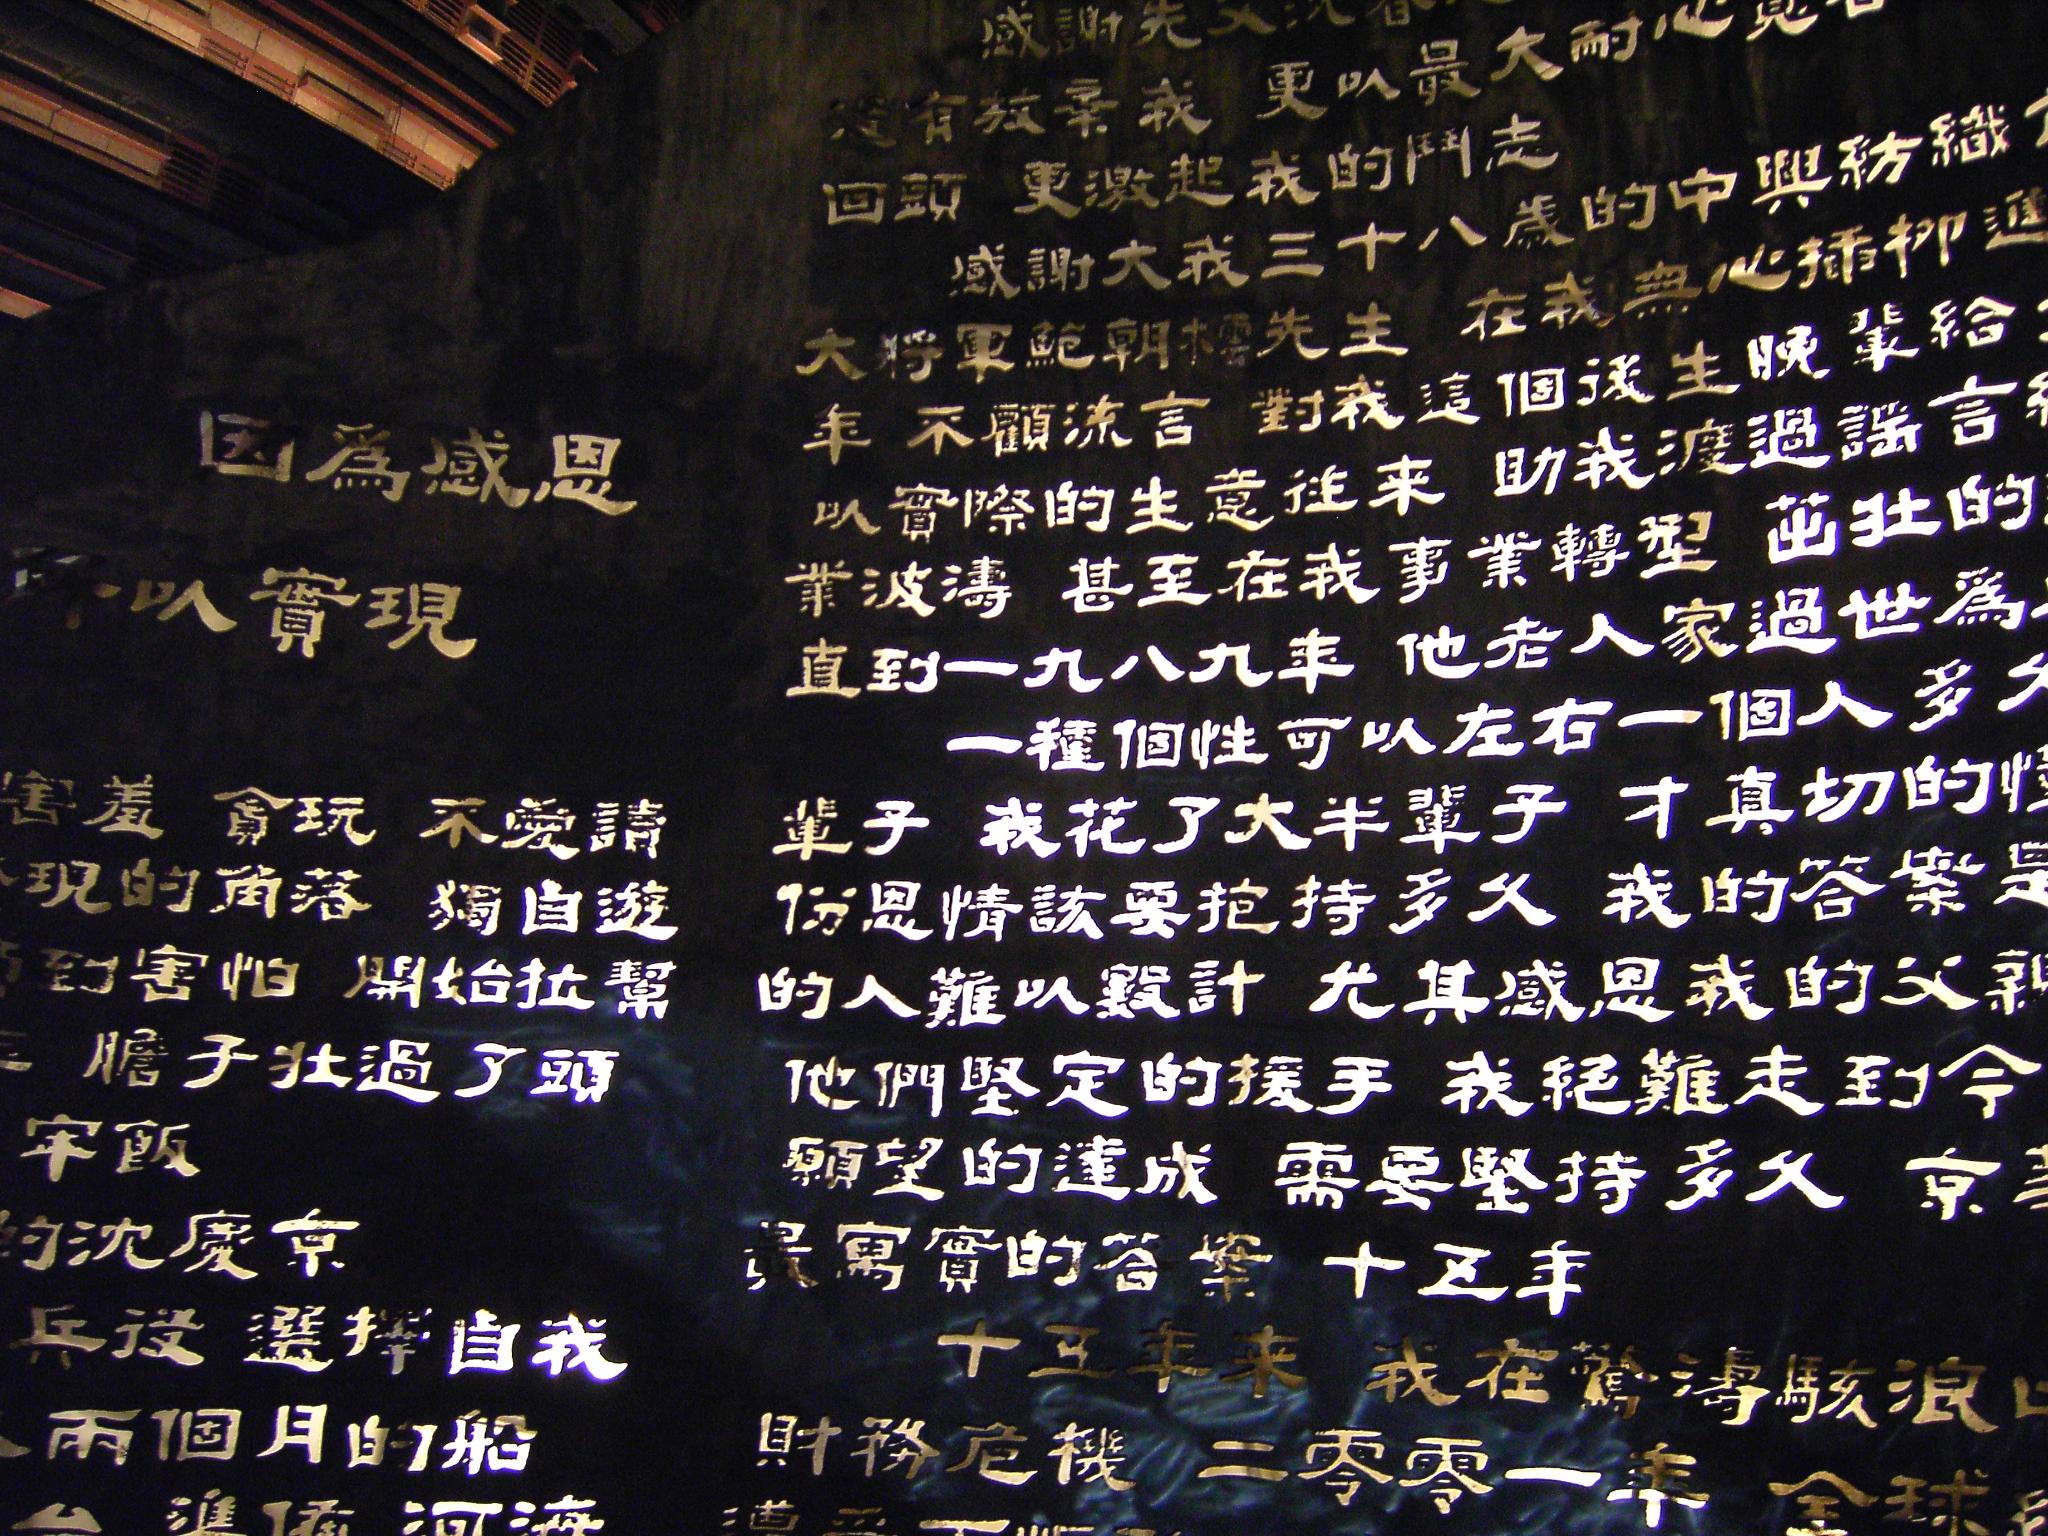 因為感恩
所以實現
害羞 貪玩 不愛讀
現的角落 獨自遊
到害怕 開始拉幫
膽子壯過了頭
牢飯
的沈慶京
兵役 選擇自我
兩個月的船
準備 河濟
感謝先父沈
還有放棄我 更以最大耐心
回頭 更激起我的鬥志
感謝大我三十八歲的中興紡織
大將軍鮑朝橒先生 在我無心插柳進
年 不顧流言 對我這個後生晚輩給
以實際的生意往來 助我渡過謠言
業波濤 甚至在我事業轉型 茁壯的
直到一九八九年 他老人家過世為
一種個性可以左右一個人多久
輩子 我花了大半輩子 才真切的懂
份恩情該要抱持多久 我的答案是
的人難以數計 尤其感恩我的父親
他們堅定的援手 我絕難走到今
願望的達成 需要堅持多久 京華
最寫實的答案 十五年
十五年來 我在驚濤駭浪
財務危機 二零零一年 全球